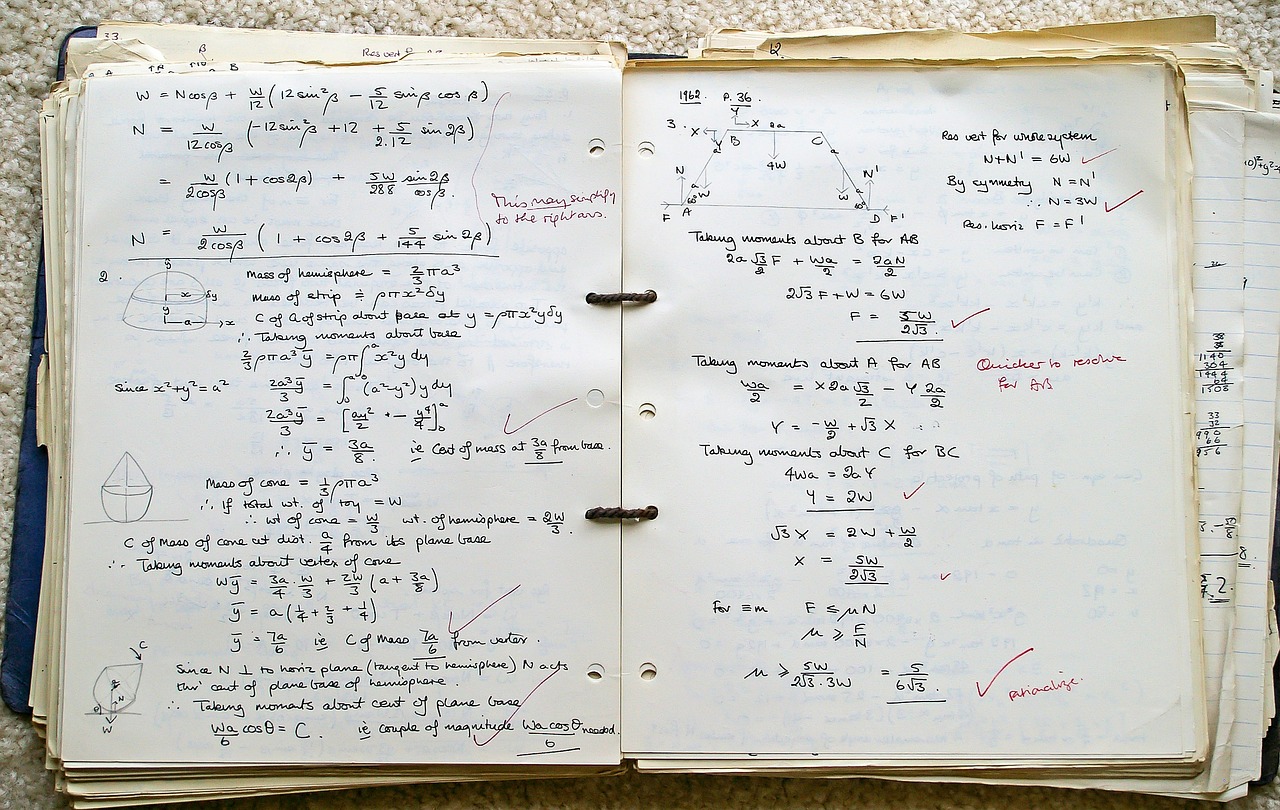 33.
β
Res vert
B
W = Ncosβ + W/12 (12sin²β − 5/12 sinβ cosβ)
N = W/12cosβ (−12sin²β + 12 + 5/2.12 sin2β)
= W/2cosβ (1 + cos2β) + 5W/288 sin2β/cosβ.
This may simplify
to the right ans.
N = W/2cosβ (1 + cos2β + 5/144 sin2β)
2.
y
x δy
y
a x
Mass of hemisphere = 2/3 πa³
Mass of strip ≑ ρπx²δy
C of G of strip about base at y = ρπx²yδy
∴ Taking moments about base
2/3 ρπa³ȳ = ρπ∫₀ᵃ x²y dy
Since x²+y²=a² 2a³ȳ/3 = ∫₀ᵃ (a²−y²)y dy
2a³ȳ/3 = [ay²/2 − y⁴/4]₀ᵃ
∴ ȳ = 3a/8 ie Cent of mass at 3a/8 from base.
Mass of cone = 1/3 ρπa³
∴ If total wt. of toy = W
∴ wt of cone = W/3 wt. of hemisphere = 2W/3.
C of Mass of cone at dist. a/4 from its plane base
∴ Taking moments about vertex of cone
Wȳ = 3a/4 . W/3 + 2W/3 (a + 3a/8)
ȳ = a(1/4 + 2/3 + 1/4)
ȳ = 7a/6 ie C of Mass 7a/6 from vertex.
C
θ
N
W
Since N ⊥ to horiz plane (tangent to hemisphere) N acts
thro' cent of plane base of hemisphere.
∴ Taking moments about cent of plane base
Wa/6 cosθ = C. ie couple of magnitude Wa cosθ/6 needed.
12.
1962. P. 36.
Y
3. X X 2a
Y B C
a 4W a
N N'
a W W a
60° 60°
F A D F'
Res vert for whole system
N+N' = 6W
By symmetry N = N'
∴ N = 3W
Res. horiz F = F'
Taking moments about B for AB
2a √3/2 F + Wa/2 = 2aN/2
2√3 F + W = 6W
F = 5W/2√3.
Taking moments about A for AB
Quicker to resolve
for AB
Wa/2 = X 2a √3/2 − Y 2a/2
Y = −W/2 + √3 X
Taking moments about C for BC
4Wa = 2aY
Y = 2W
√3 X = 2W + W/2
X = 5W/2√3
For ≡m F ≤ μN
μ ≥ F/N
μ ≥ 5W/2√3.3W = 5/6√3.
rationalize.
38
38
1140
304
1444
64
1508
33
32
990
66
956